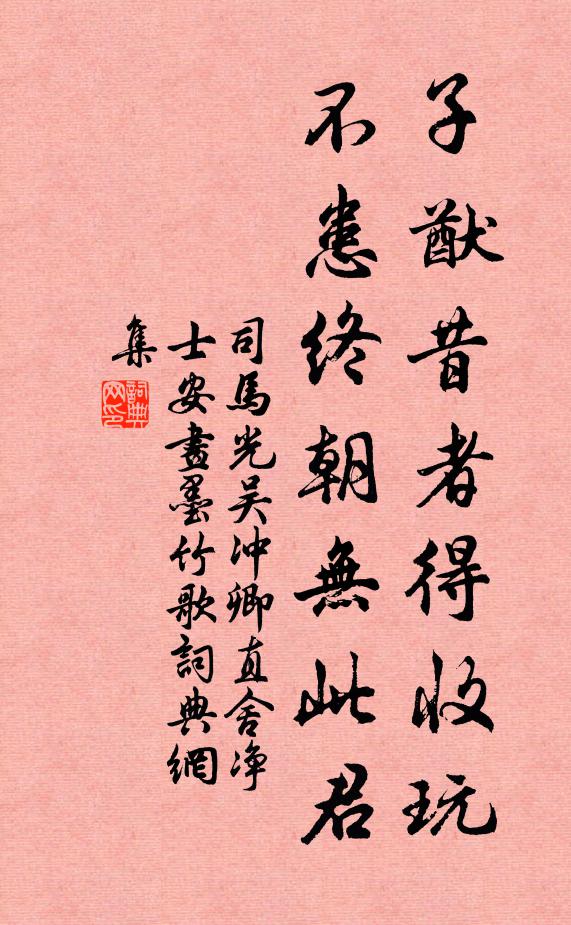 子猷昔者得收玩
不患終朝無此君
司馬光吴冲卿直舍净
士安畫墨竹歌詞典網
集
詞典网印